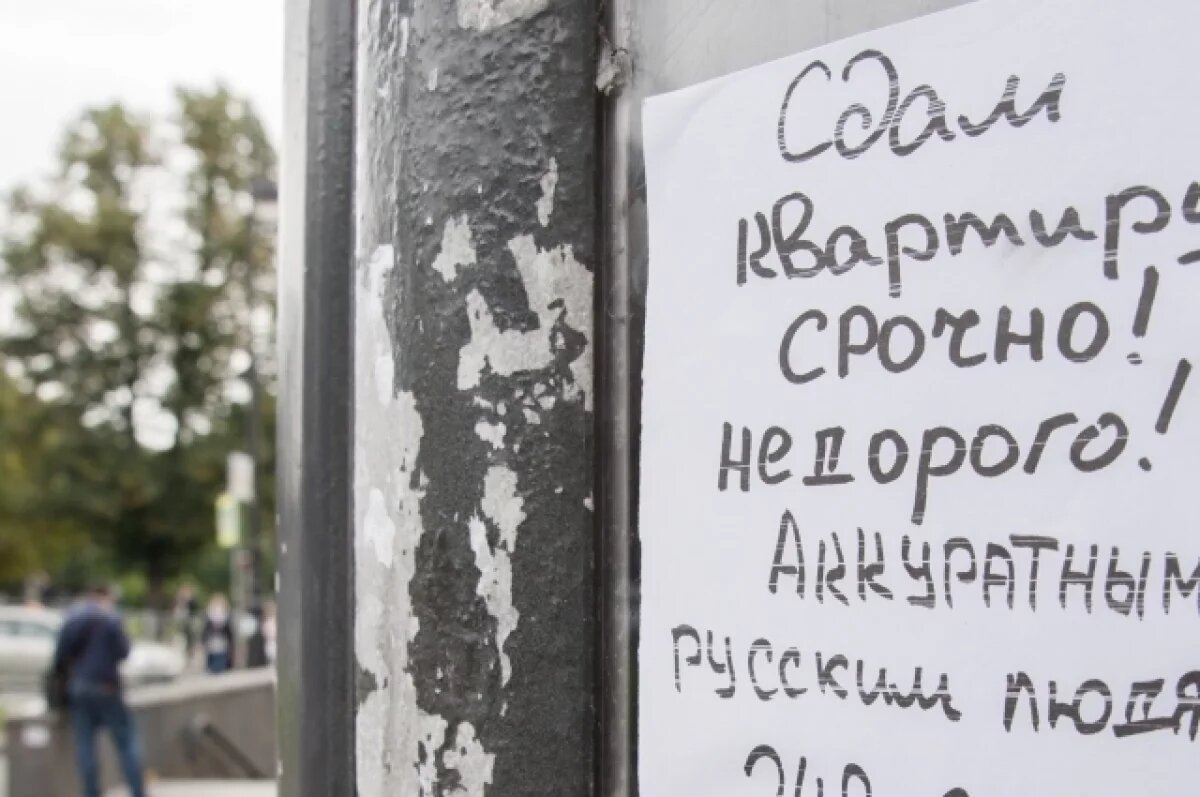 Сдам
квартиру
срочно!
недорого!
Аккуратным
русским людя